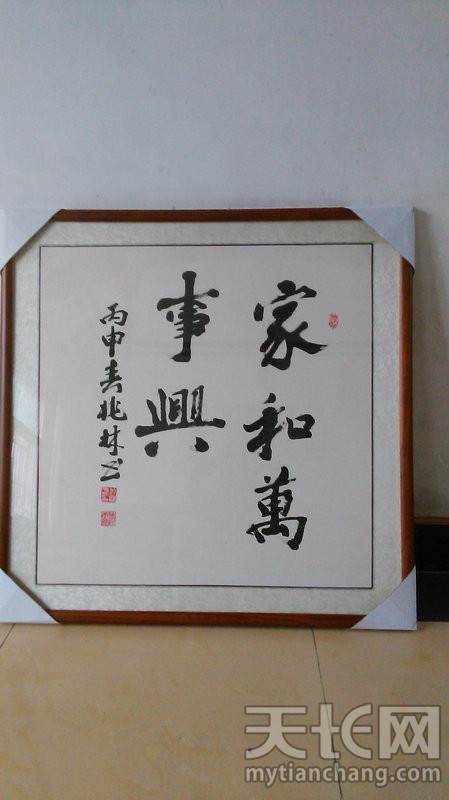 家和萬
事興
丙申春兆林书
天长网
mytianchang.com